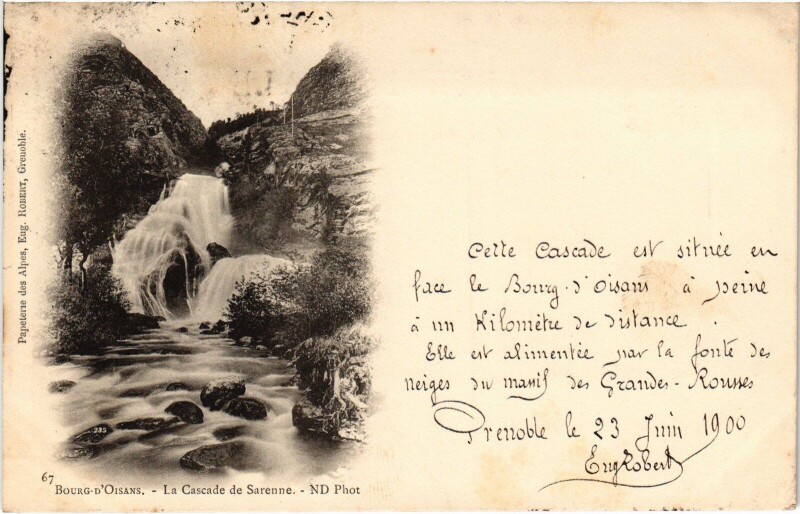 Papeterie des Alpes, Eug. ROBERT, Grenoble.
235
67
BOURG-D'OISANS. - La Cascade de Sarenne. - ND Phot
Cette Cascade est située en
face le Bourg-d'Oisans à peine
à un Kilomètre de distance.
Elle est alimentée par la fonte des
neiges du massif des Grandes-Rousses
Grenoble le 23 Juin 1900
Eug Robert